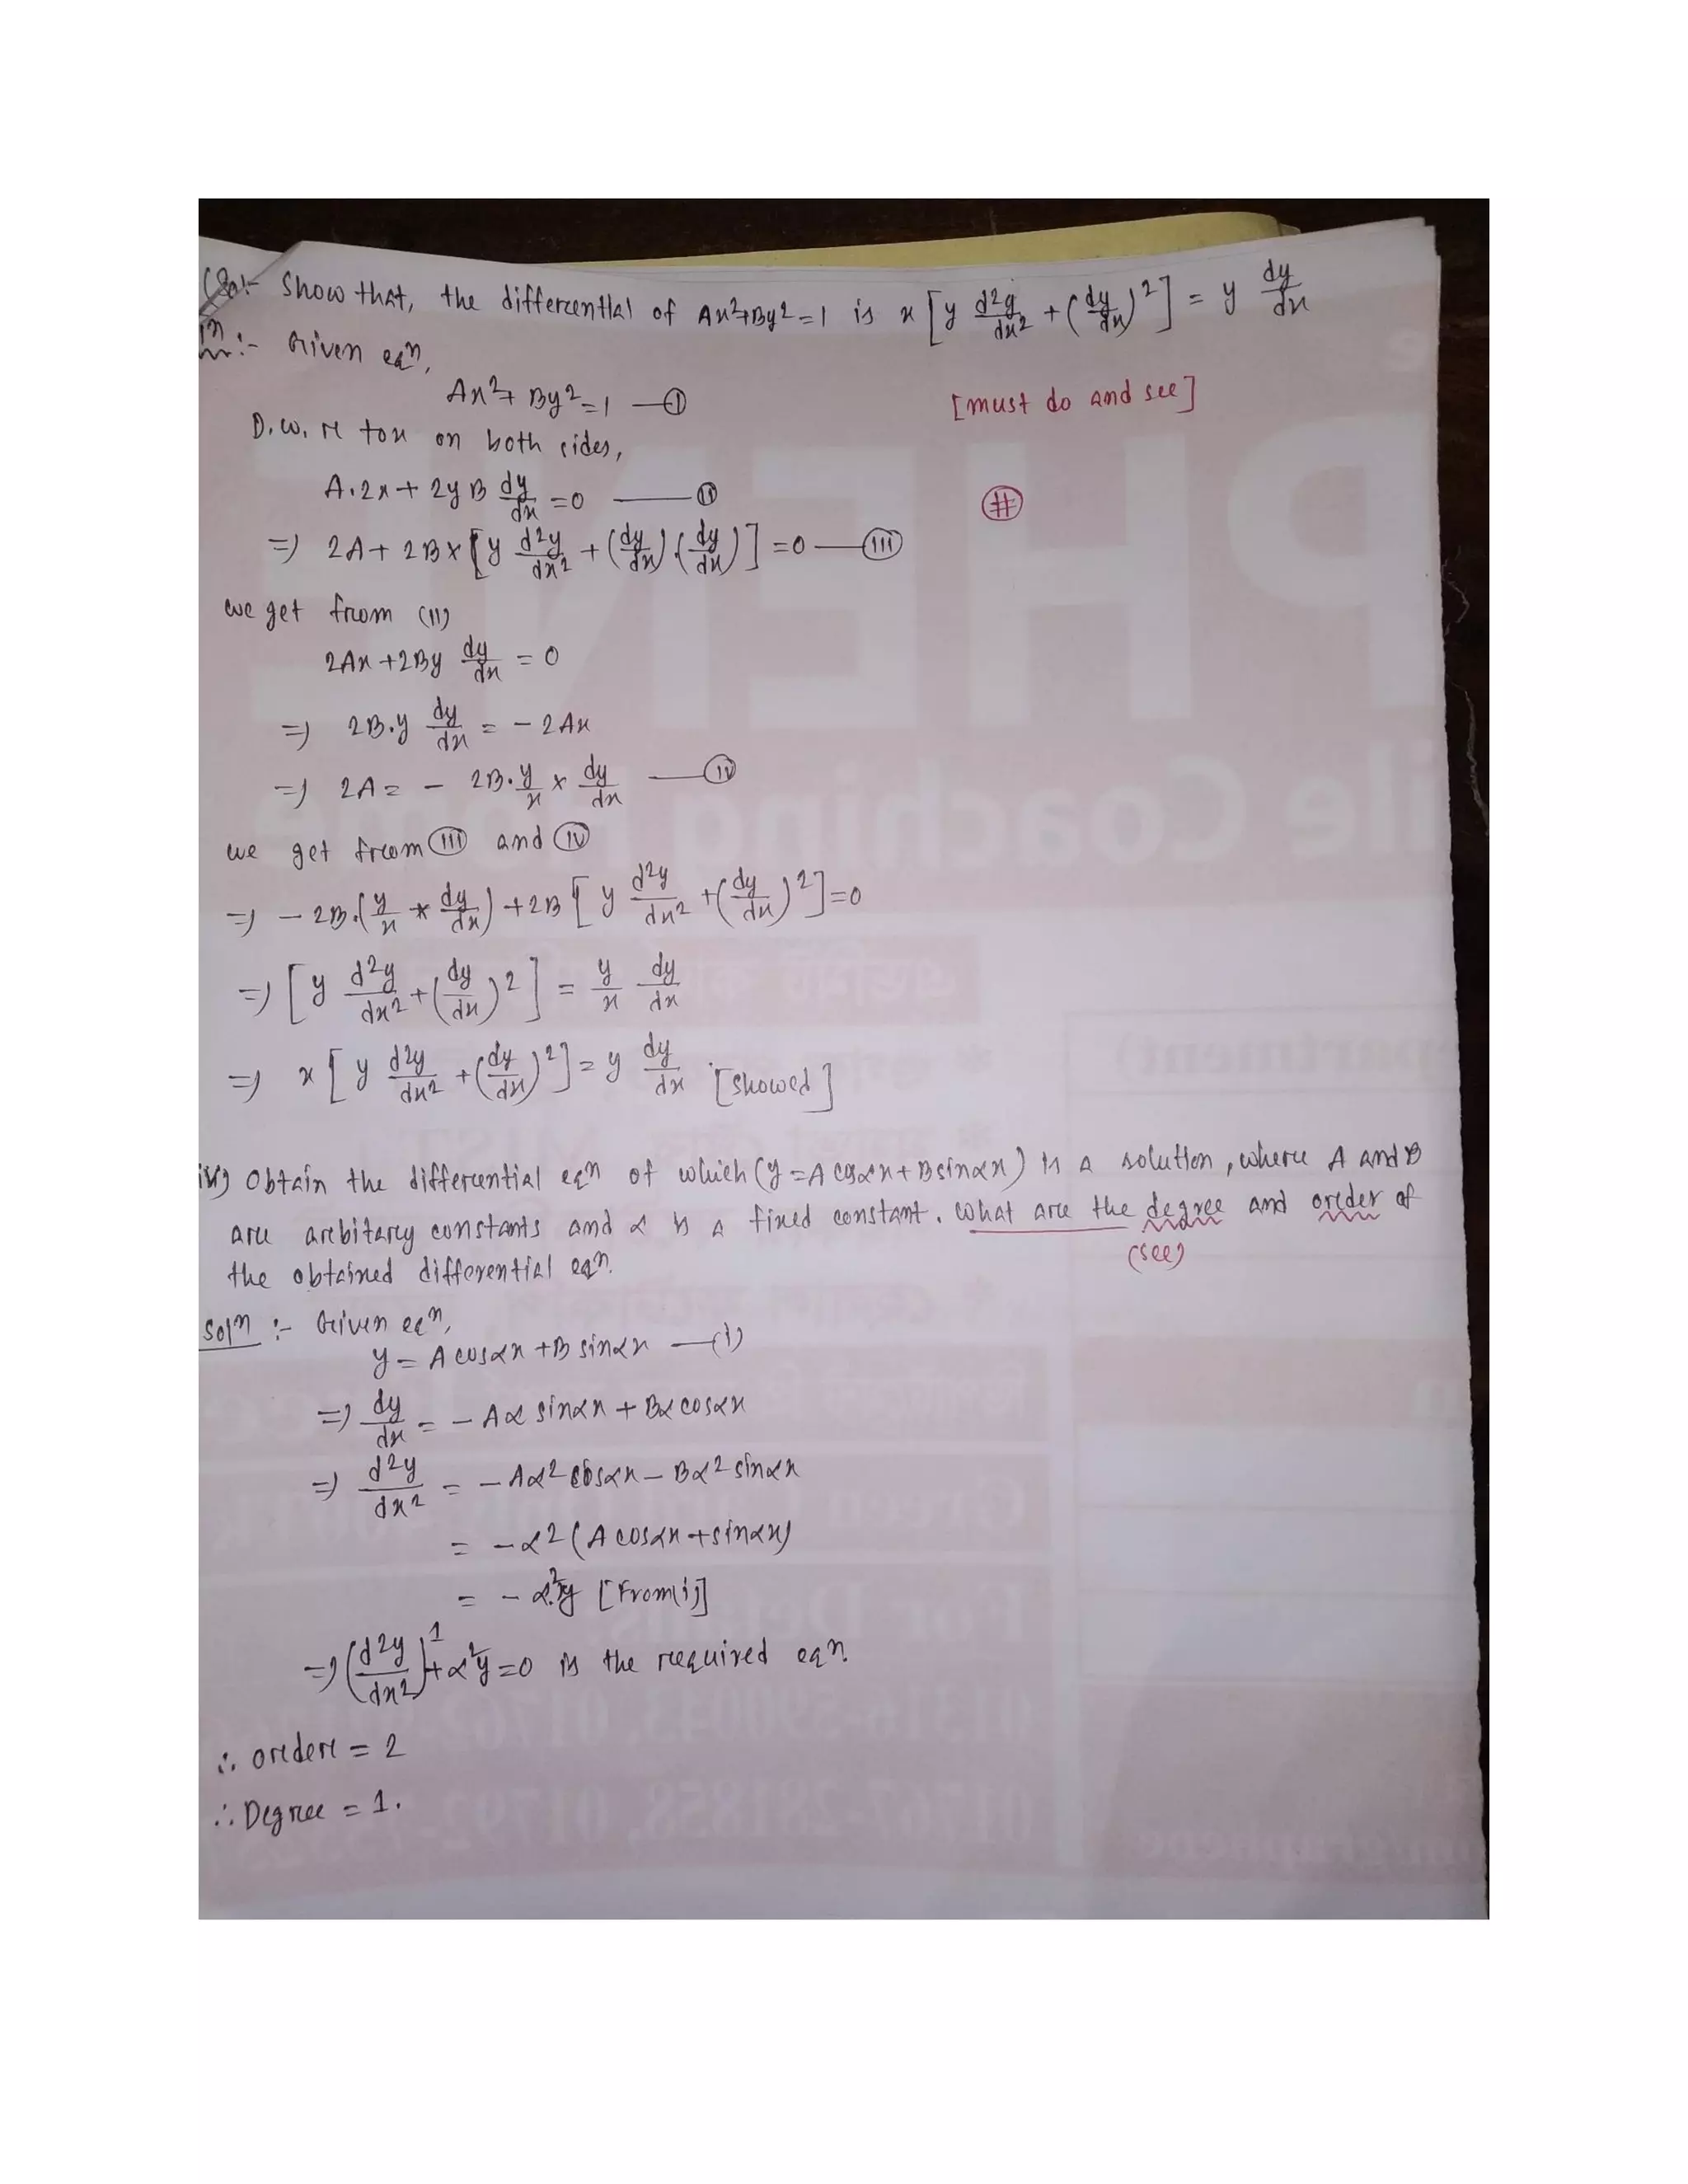 Show that, the differential of Ax²+By²=1 is x[y d²y/dx² + (dy/dx)²] = y dy/dx
:- Given eqn,
Ax²+ By²=1 —(i)
[must do and see]
D.w.r to x on both sides,
A.2x + 2y B dy/dx =0 —(ii)
(#)
=> 2A + 2B x [y d²y/dx² + (dy/dx).(dy/dx)] =0 —(iii)
we get from (ii)
2Ax +2By dy/dx = 0
=> 2B.y dy/dx = - 2Ax
=> 2A = - 2B. y/x x dy/dx —(iv)
we get from (iii) and (iv)
=> - 2B.(y/x * dy/dx) +2B [y d²y/dx² +(dy/dx)²]=0
=> [y d²y/dx² +(dy/dx)²] = y/x dy/dx
=> x[y d²y/dx² +(dy/dx)²]= y dy/dx [showed]
iv) Obtain the differential eqn of which (y =A cosαx + B sinαx) is a solution, where A and B
are arbitary constants and α is a fixed constant. What are the degree and order of
(see)
the obtained differential eqn.
Soln :- Given eqn,
y = A cosαx +B sinαx —(i)
=> dy/dx = - Aα sinαx + Bα cosαx
=> d²y/dx² = - Aα² cosαx - Bα² sinαx
= -α² (A cosαx + sinαx)
= - α².y [From(i)]
=> (d²y/dx²)¹ + α²y =0 is the required eqn.
∴ order = 2
∴ Degree = 1.
PHENE
ile Coaching Home
epartment)
MIST
Green
For Details